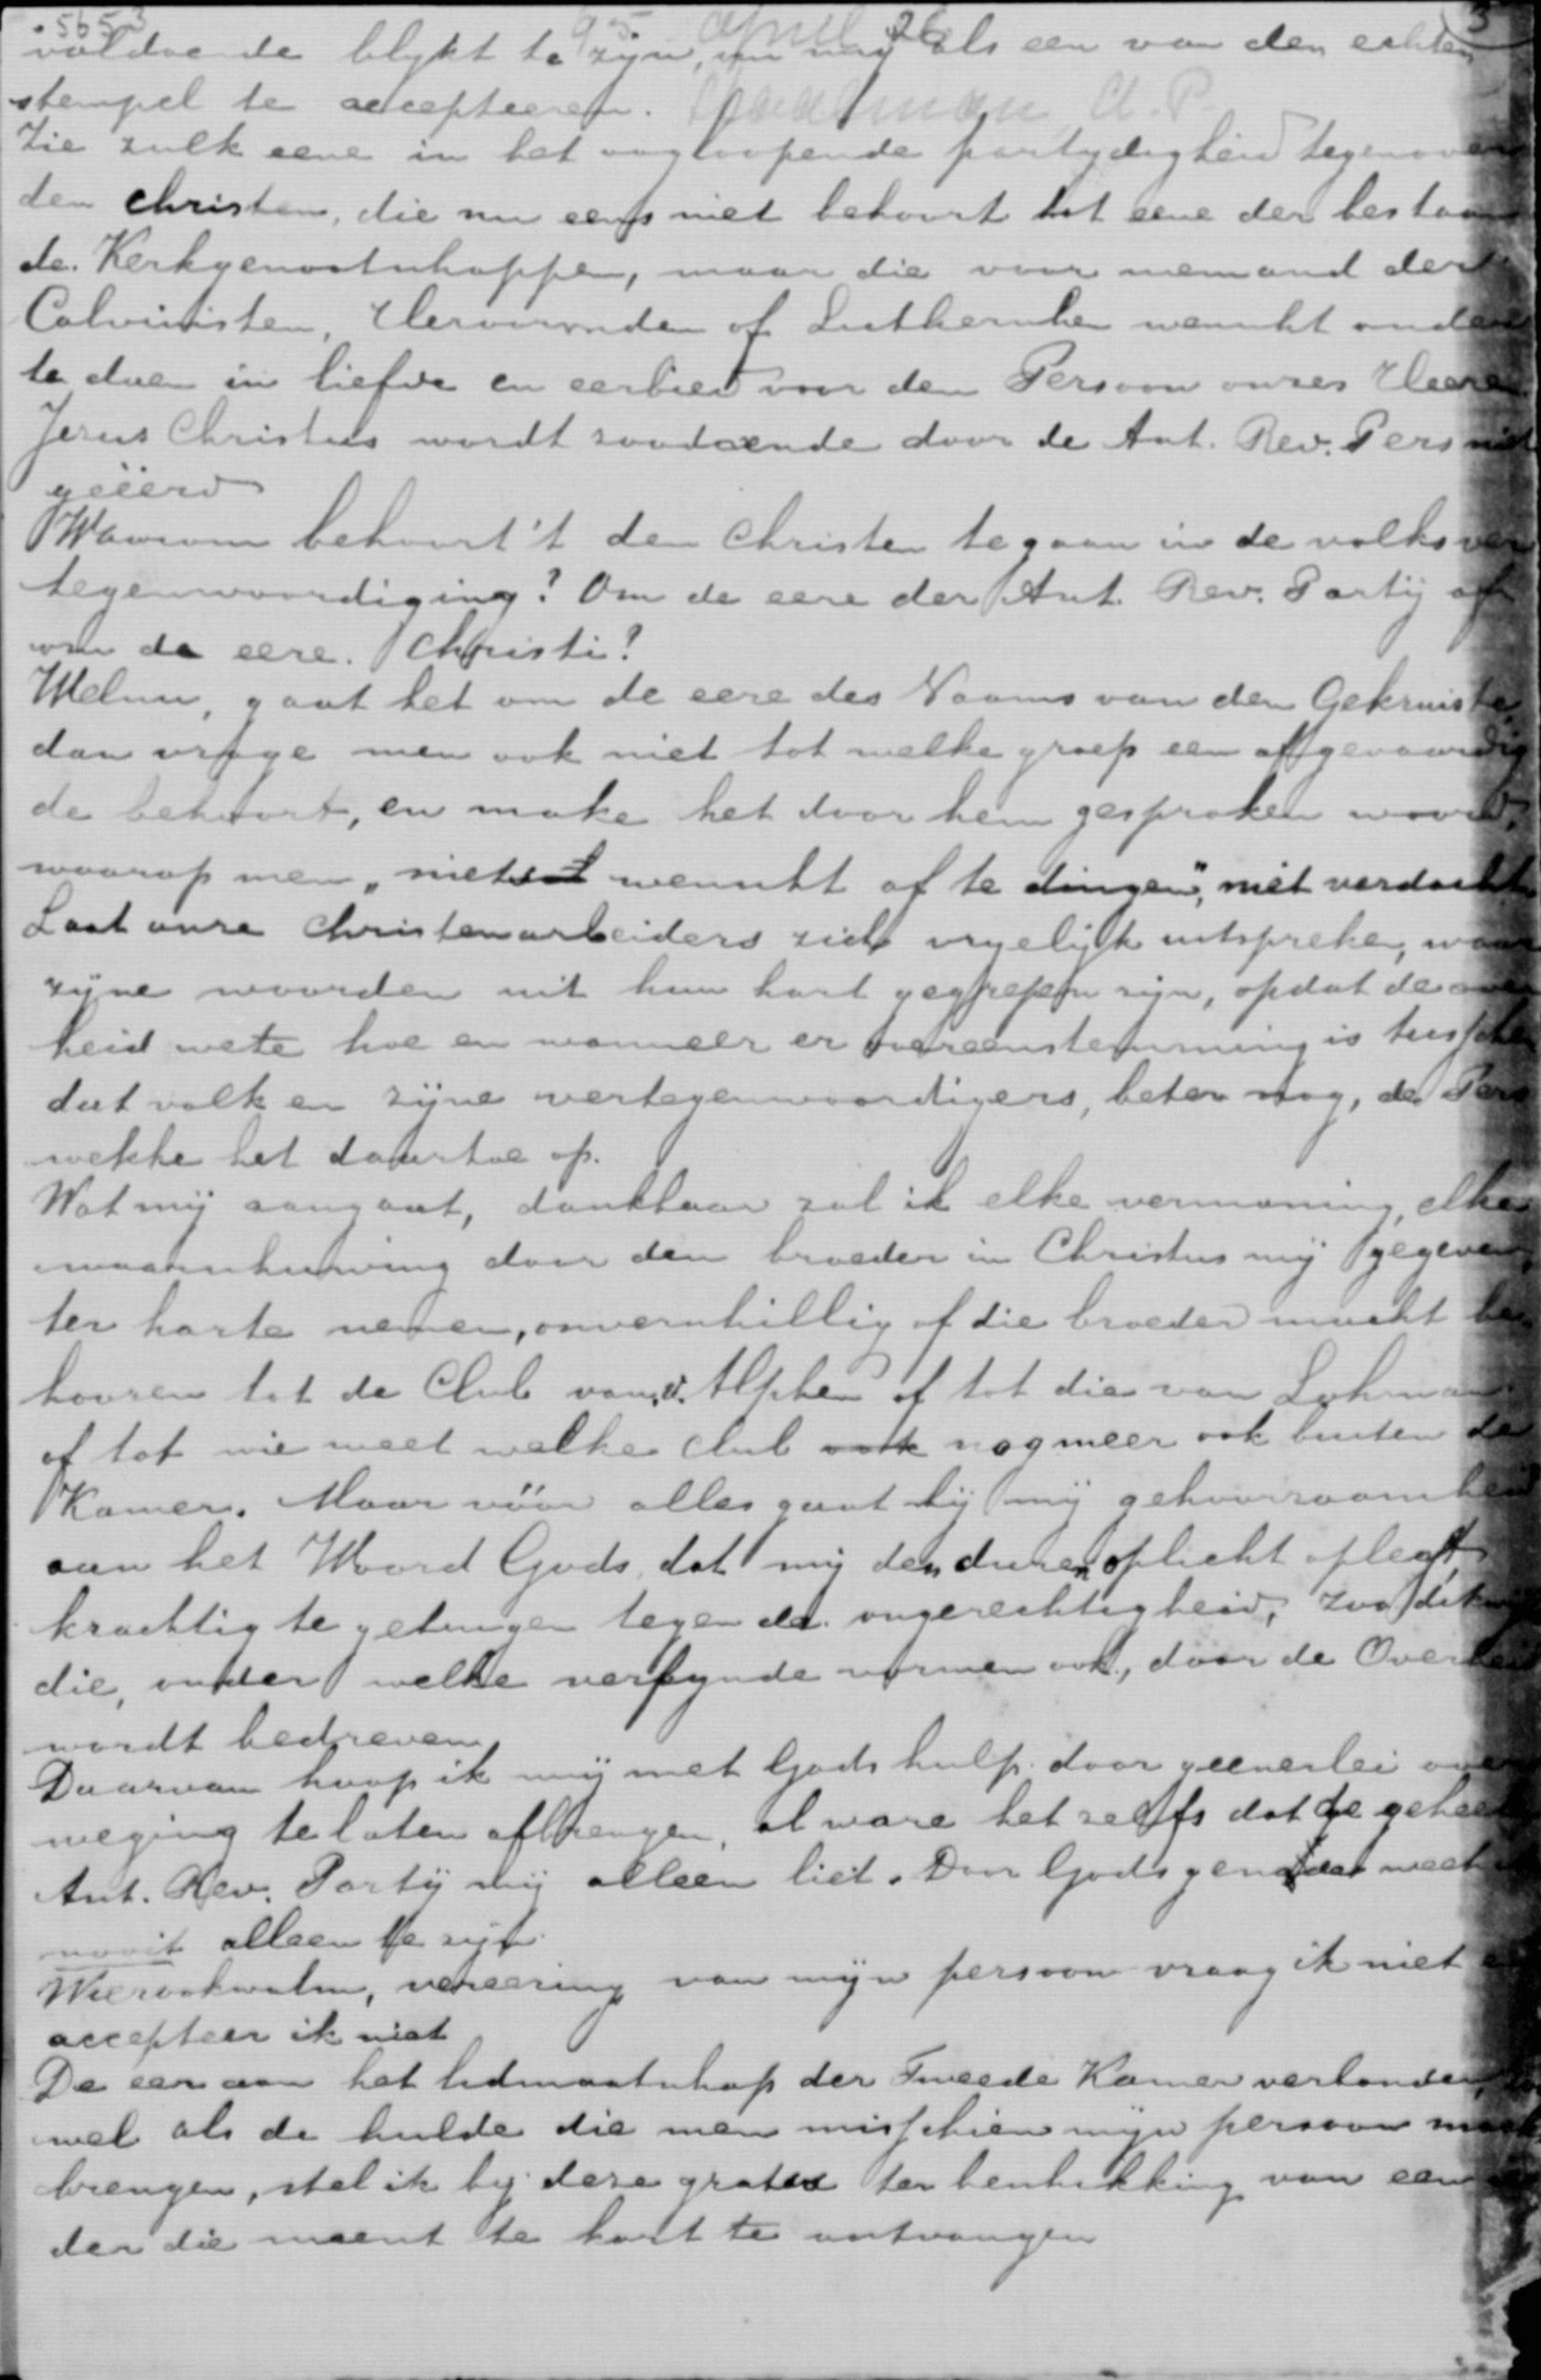 5653 95 april 26 3
voldoende blykt te zyn, om nog als een van den echten
stempel te accepteeren. A. P.
Zie zulk eene in het oogloopende partydigheid tegenover
den christen, die nu eens niet behoort tot eene der bestaan
de Kerkgenootschappen, maar die voor niemand der
Calvinisten, Hervormden of Lutherschen wenscht onder
te doen in liefde en eerbied voor den Persoon onzes Heeren
Jezus Christus wordt zoodoende door de Ant. Rev. Pers niet
geëerd
Waarom behoort 't den Christen te gaan in de volksver
tegenwoordiging? Om de eere der Ant. Rev. Partij of
om de eere Christi?
Welnu, gaat het om de eere des Naams van den Gekruiste,
dan vrage men ook niet tot welke groep een afgevaardig
de behoort, en make het door hem gesproken woord,
waarop men „niets wenscht af te dingen", niet verdacht
Laat onze Christenarbeiders zich vryelijk uitspreken, waar
zijne woorden uit hun hart gegrepen zijn, opdat de over
heid wete hoe en wanneer er overeenstemming is tusschen
dat volk en zijne vertegenwoordigers, beter nog, de Pers
wekke het daartoe op.
Wat mij aangaat, dankbaar zal ik elke vermaning, elke
waarschuwing door den broeder in Christus mij gegeven,
ter harte nemen, onverschillig of die broeder mocht be
hooren tot de Club van v. Alphen of tot die van Lohman
of tot wie weet welke club ook nog meer ook buiten de
Kamer. Maar vóór alles gaat bij mij gehoorzaamheid
aan het Woord Gods, dat mij den duren plicht oplegt
krachtig te getuigen tegen de ongerechtigheid, zoo dikwijls
die, onder welke verfynde vormen ook, door de Overheid
wordt bedreven
Daarvan hoop ik mij met Gods hulp door geenerlei over
weging te laten afbrengen, al ware het zelfs dat de geheele
Ant. Rev. Partij mij alleen liet. Door Gods genade weet ik
nooit alleen te zijn.
Wierookwalm, vereering van mijn persoon vraag ik niet en
accepteer ik niet
De eer aan het lidmaatschap der Tweede Kamer verbonden, zoo
wel als de hulde die men misschien mijn persoon mocht
brengen, stel ik bij deze gratis ter beschikking van een ie
der die meent te kort te ontvangen